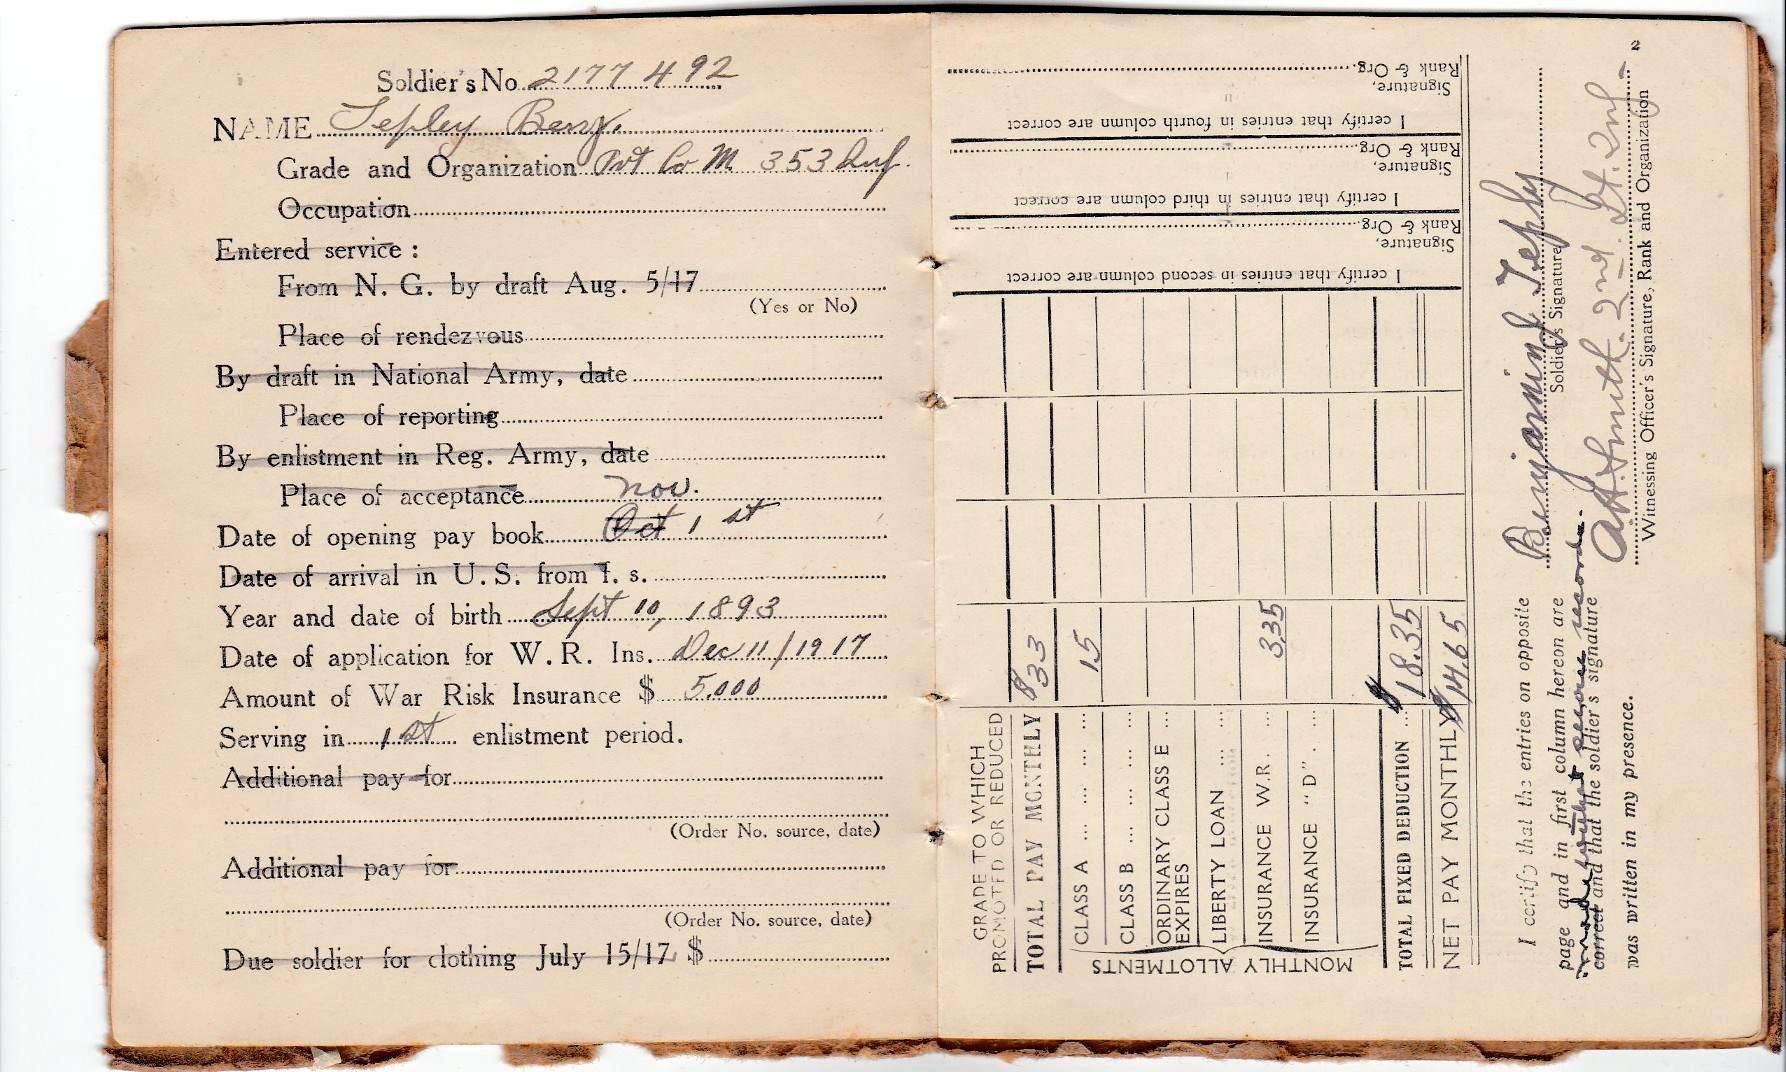 Soldier's No. 2177492
NAME Tepley Benj.
Grade and Organization Pvt Co M. 353 Inf.
Occupation
Entered service :
From N. G. by draft Aug. 5/17
(Yes or No)
Place of rendezvous
By draft in National Army, date
Place of reporting
By enlistment in Reg. Army, date
Place of acceptance
Nov.
Date of opening pay book Oct 1 st
Date of arrival in U. S. from F. s.
Year and date of birth Sept 10, 1893
Date of application for W. R. Ins. Dec 11/1917
Amount of War Risk Insurance $ 5.000
Serving in 1 st enlistment period.
Additional pay for
(Order No. source, date)
Additional pay for
(Order No. source, date)
Due soldier for clothing July 15/17 $
2
GRADE TO WHICH
PROMOTED OR REDUCED
TOTAL PAY MONTHLY $33
MONTHLY ALLOTMENTS
CLASS A ... ... ... ... 15
CLASS B ... ... ...
ORDINARY CLASS E ...
EXPIRES
LIBERTY LOAN ... ...
INSURANCE W.R. ... 3.35
INSURANCE "D". ...
TOTAL FIXED DEDUCTION ... $18.35
NET PAY MONTHLY $14.65
I certify that entries in second column are correct
Signature,
Rank & Org.
I certify that entries in third column are correct
Signature,
Rank & Org.
I certify that entries in fourth column are correct
Signature,
Rank & Org.
I certify that the entries on opposite
page and in first column hereon are
correct and that the soldier's signature
was written in my presence.
Benjamin J Teply
Soldier's Signature
2nd. Lt. Inf.
Witnessing Officer's Signature, Rank and Organization